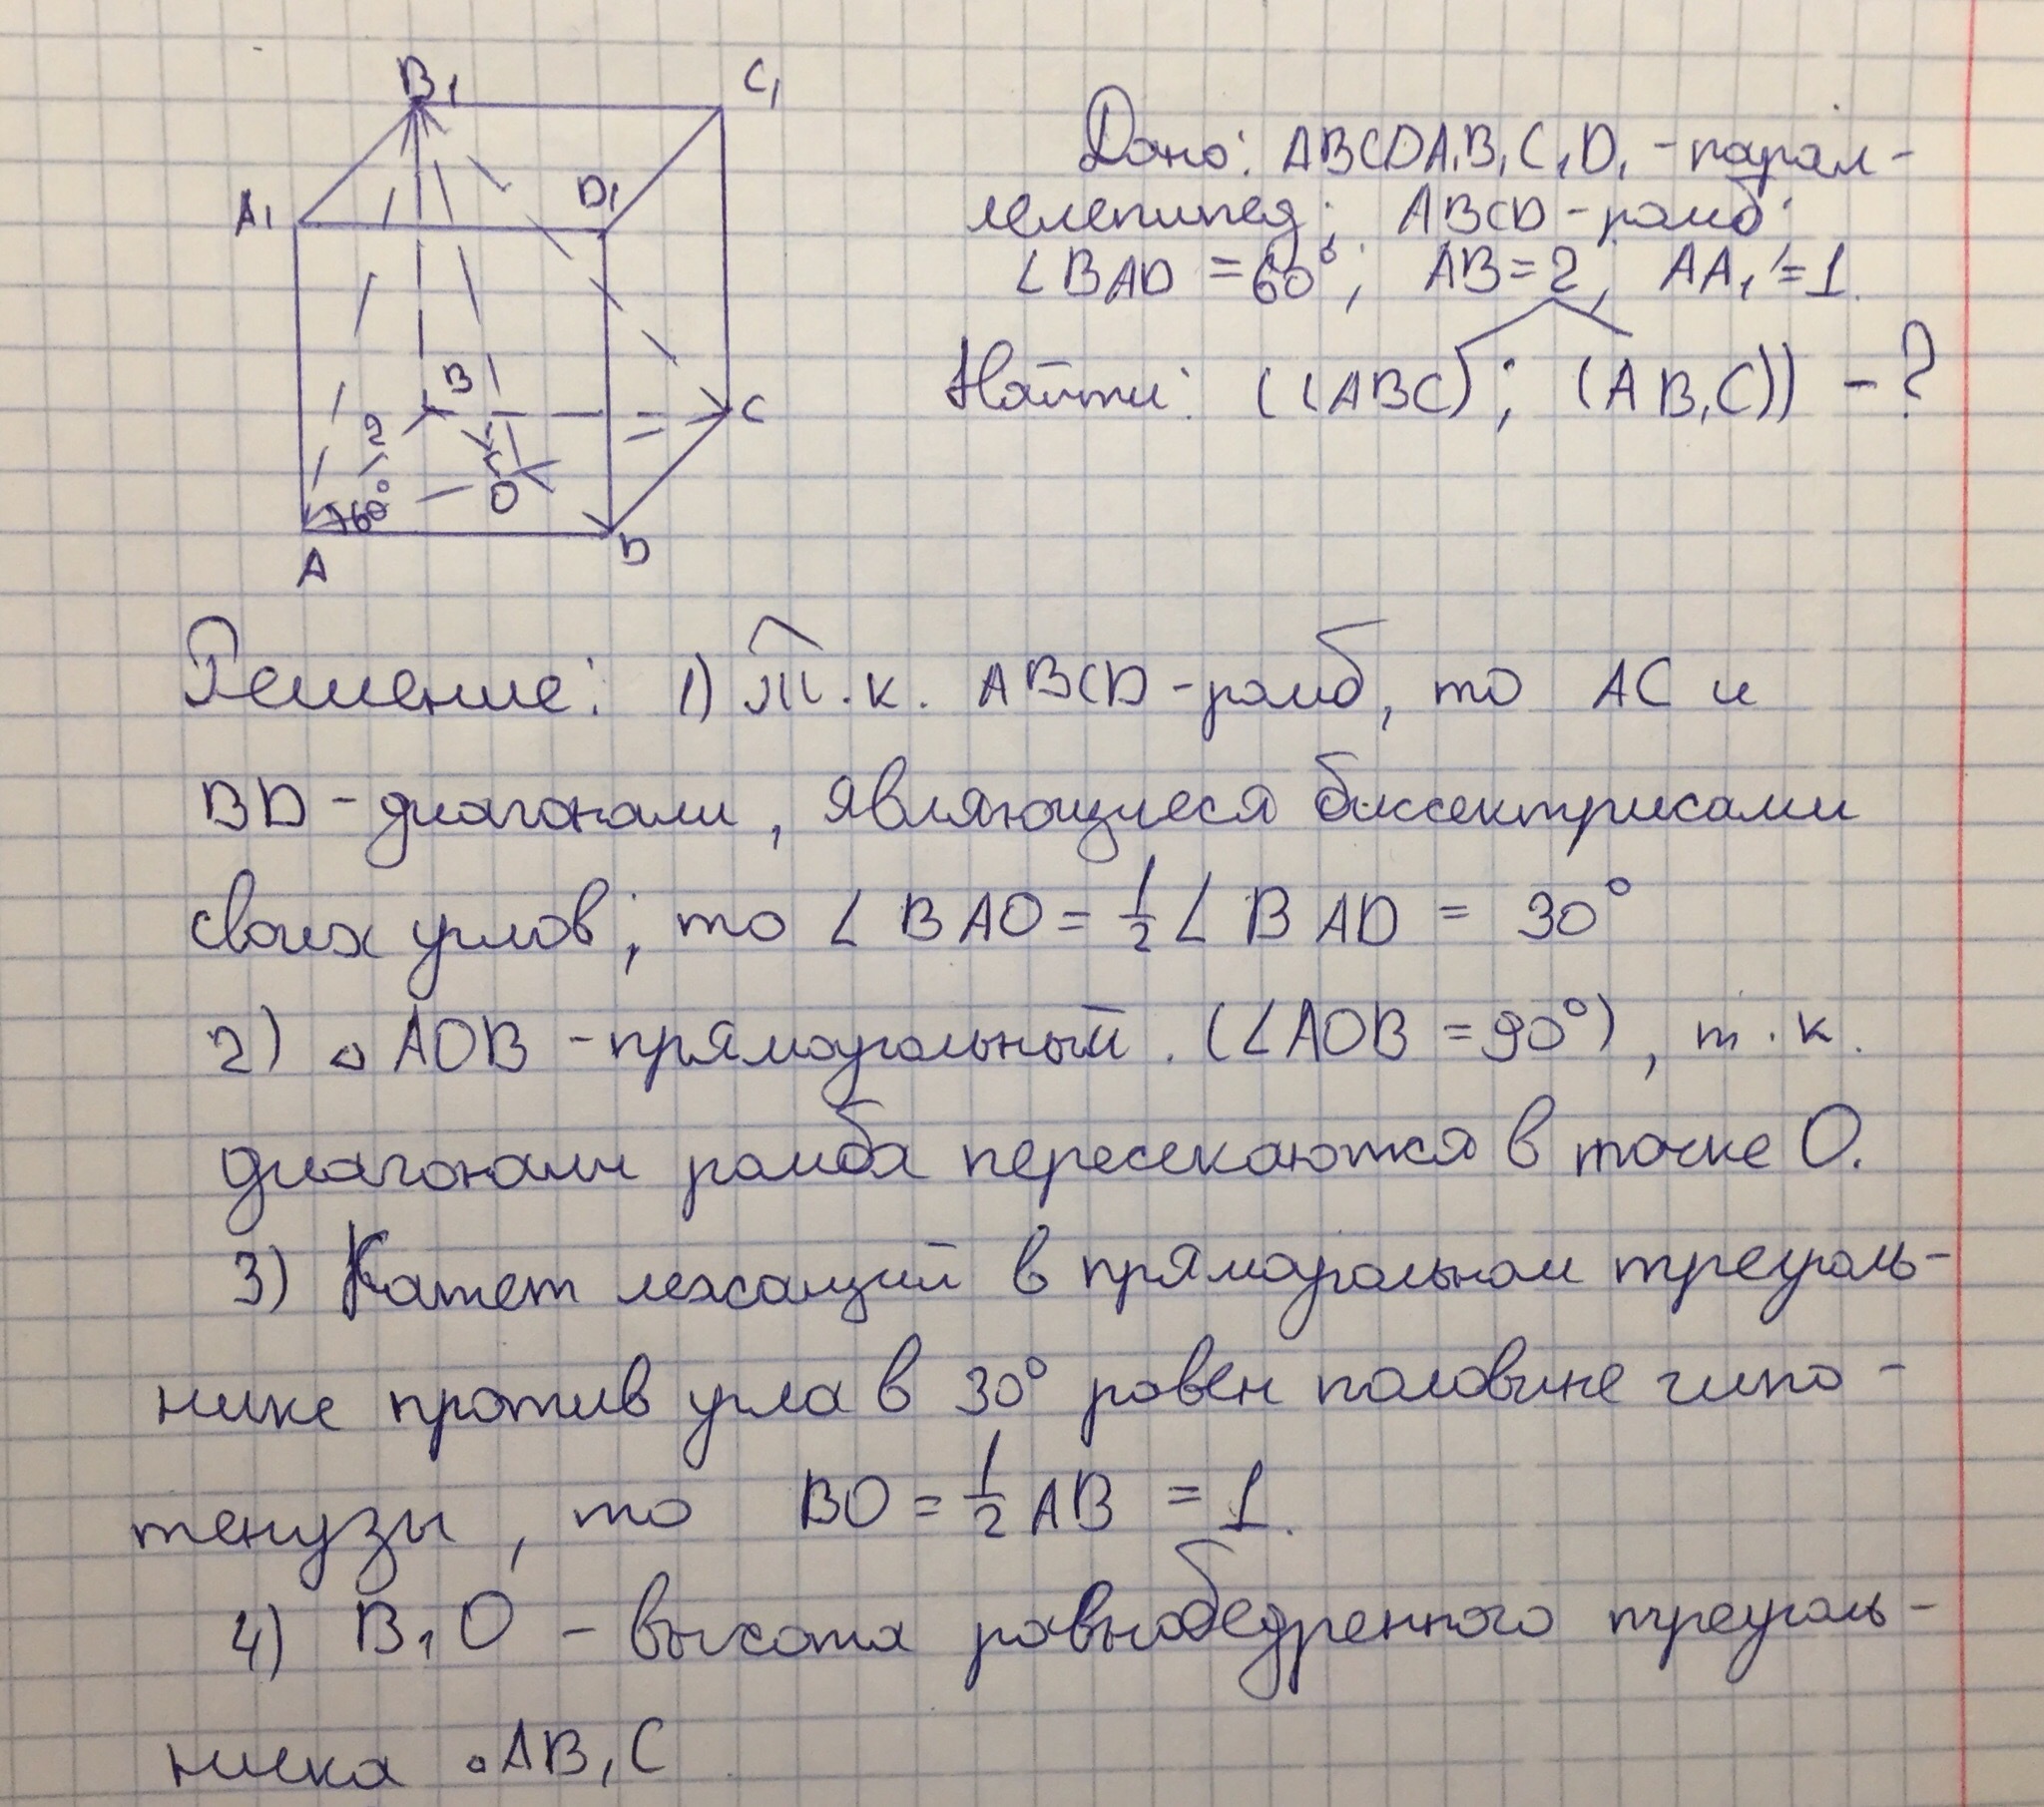 B₁
C₁
A₁
D₁
B
C
2
60°
O
A
D
Дано: ABCDA₁B₁C₁D₁ - парал-
лелепипед; ABCD - ромб;
∠BAD = 60°; AB = 2; AA₁ = 1.
Найти: ((ABC); (AB₁C)) - ?
Решение: 1) Т.к. ABCD - ромб, то AC и
BD - диагонали, являющиеся биссектрисами
своих углов; то ∠BAO = 1/2 ∠BAD = 30°
2) △AOB - прямоугольный. (∠AOB = 90°), т.к.
диагонали ромба пересекаются в точке O.
3) Катет лежащий в прямоугольном треуголь-
нике против угла в 30° равен половине гипо-
тенузы, то BO = 1/2 AB = 1.
4) B₁O - высота равнобедренного треуголь-
ника △AB₁C